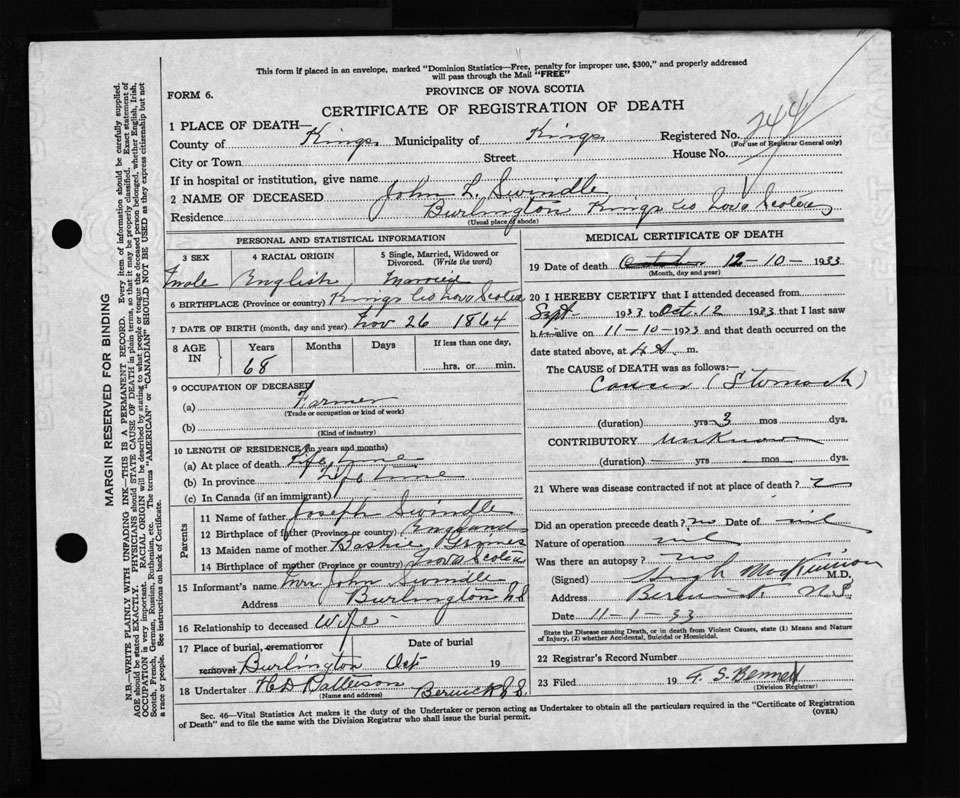 This form if placed in an envelope, marked "Dominion Statistics—Free, penalty for improper use, $300," and properly addressed
will pass through the Mail "FREE"
PROVINCE OF NOVA SCOTIA
FORM 6.
CERTIFICATE OF REGISTRATION OF DEATH
1 PLACE OF DEATH—
County of Kings Municipality of Kings Registered No. 244
(For use of Registrar General only)
City or Town Street House No.
If in hospital or institution, give name
2 NAME OF DECEASED John L. Swindle
Residence Burlington Kings Co Nova Scotia
(Usual place of abode)
PERSONAL AND STATISTICAL INFORMATION
3 SEX 4 RACIAL ORIGIN 5 Single, Married, Widowed or Divorced. (Write the word)
male English Married
6 BIRTHPLACE (Province or country) Kings Co Nova Scotia
7 DATE OF BIRTH (month, day and year) Nov 26 1864
8 AGE IN Years Months Days If less than one day,
68 hrs. or min.
9 OCCUPATION OF DECEASED
(a) Farmer
(Trade or occupation or kind of work)
(b)
(Kind of industry)
10 LENGTH OF RESIDENCE (in years and months)
(a) At place of death Life time
(b) In province Life time
(c) In Canada (if an immigrant)
Parents
11 Name of father Joseph Swindle
12 Birthplace of father (Province or country) England
13 Maiden name of mother Grimes
14 Birthplace of mother (Province or country) Nova Scotia
15 Informant's name Mrs John Swindle
Address Burlington N.S
16 Relationship to deceased Wife
17 Place of burial, cremation or Date of burial
removal Burlington Oct 19
18 Undertaker H D Patterson Berwick N.S.
(Name and address)
MEDICAL CERTIFICATE OF DEATH
19 Date of death October 12-10-1933
(Month, day and year)
20 I HEREBY CERTIFY that I attended deceased from
Sept- 1933 to Oct. 12 1933 that I last saw
him alive on 11-10-1933 and that death occurred on
date stated above, at 4 A m.
The CAUSE of DEATH was as follows:—
Cancer (Stomach)
(duration) yrs 3 mos dys.
CONTRIBUTORY unknown
(duration) yrs mos dys.
21 Where was disease contracted if not at place of death? ?
Did an operation precede death? no Date of nil
Nature of operation nil
Was there an autopsy? no
(Signed) Hugh MacKinnon M.D.
Address Berwick N.S.
Date 11-1-33
State the Disease causing Death, or in death from Violent Causes, state (1) Means and Nature
of Injury, (2) whether Accidental, Suicidal or Homicidal.
22 Registrar's Record Number
23 Filed 19 S. Bennett
(Division Registrar)
Sec. 46—Vital Statistics Act makes it the duty of the Undertaker or person acting as Undertaker to obtain all the particulars required in the "Certificate of Registration
of Death" and to file the same with the Division Registrar who shall issue the burial permit. (OVER)
MARGIN RESERVED FOR BINDING
N.B.—WRITE PLAINLY WITH UNFADING INK—THIS IS A PERMANENT RECORD. Every item of information should be carefully supplied.
AGE should be stated EXACTLY. PHYSICIANS should STATE CAUSE OF DEATH in plain terms, so that it may be properly classified. Exact statement of
OCCUPATION is very important. RACIAL ORIGIN will be described by stating to what people or tongue the deceased person belonged, whether English, Irish,
Scotch, French, German, Russian, Ruthenian, etc. The terms "AMERICAN" or "CANADIAN" SHOULD NOT BE USED as they express citizenship but not
a race or people. See instructions on back of Certificate.